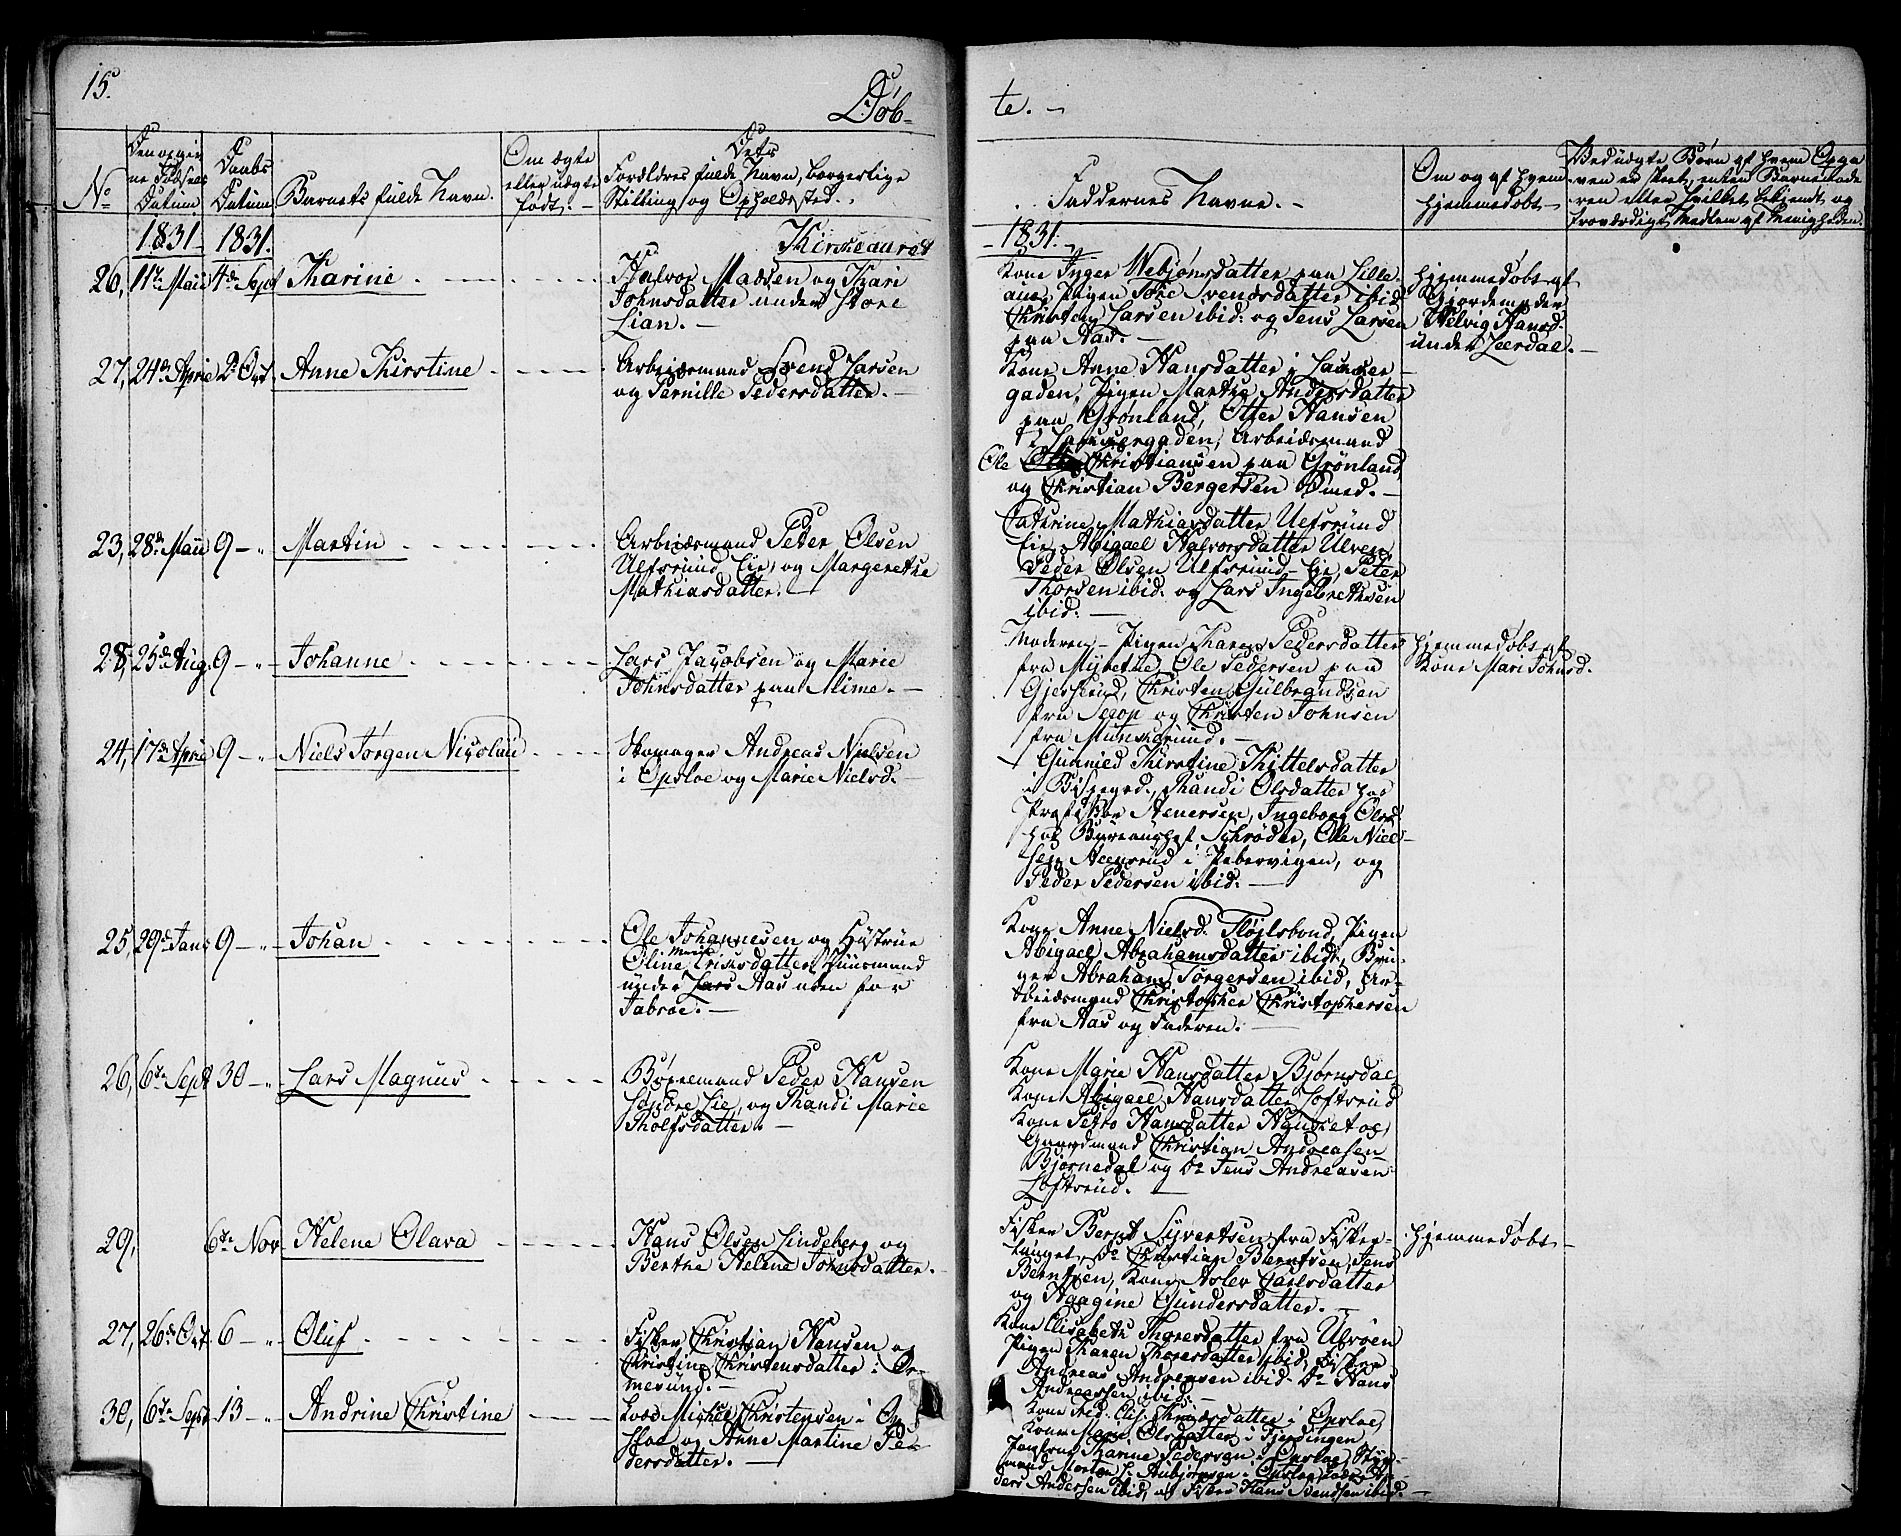 15.
Døb-
te. -
No
Den opgiv
ne Fødsels
Datum
Daabs
Datum
Barnets fulde Navn.
Om ægte
eller uægte
født. -
Dets
Forældres fulde Navn, borgerlige
Stilling og Opholdssted.
Faddernes Navne. -
Om og af hvem
hjemmedøbt
Ved uægte Børn af hvem Opga
ven er skeet, enten Barnemode
ren eller hvilket bekjendt og
troværdigt Medlem af Menigheden.
1831 1831.
- 1831. -
26, 11te Maii 4de Sept Karine
Halvor Madsen og Kari
Johnsdatter under Store
Lian. -
Kone Inger Webjønsdatter paa Lille
aue, Pigen Tore Svendsdatter ibid
Christen Larsen ibid: og Jens Larsen
paa Aas. -
Hjemmedøbt af
Gjordemoder
Helvig Hansd.
under Leerdal. -
27, 24de April 2. Oct. Anne Kirstine
Arbeidsmand Svend Larsen
og Pernille Pedersdatter. -
Kone Anne Hansdatter i
gaden, Pigen Marthe Andersdatter
paa Grønland, Otter Hansen
i gaden, Arbeidsmand
Ole Christiansen paa Grønland,
og Christian Bergersen Smed. -
23, 28de Maii 9 - " Martin
Arbeidsmand Peder Olsen
Ulfsrud Eie, og Margerethe
Mathiasdatter. -
Cathrine Mathiasdatter Ulfsrud
Eie, Abigael Halvorsdatter Ulven,
Peder Olsen Ulfsrud Eie, Peter
Thorsen ibid. og Lars Ingebrethsen
ibid. -
28, 25de Aug. 9 - " Johanne
Lars Jacobsen og Marie
Johnsdatter paa Alime. -
Moderen - Pigen Karen Pedersdatter
fra Ole Pedersen paa
Christen Gulbrandsen
fra og Christen Johnsen
fra Munkerud. -
Hjemmedøbt af
Kone Mari Johnsd.
24, 17de April 9 - " Niels Jørgen Nicolai
Skomager Andreas Nielsen
i Opsloe og Marie Nielsd. -
Kirstine Kittelsdatter
i Bispegd., Randi Olsdatter hos
Stenersen, Ingeborg Olsd
hos Schrøder, Ole Niel-
sen i Pebervigen, og
Peder Pedersen ibid. -
25, 29de Janr 9 - " Johan
Ole Johannesen og Hustrue
Oline Marie Huusmand
under Lars Aas uden for
Tabroe. -
Kone Anne Nielsd. Fløjlsbond, Pigen
Abigael Abrahamsdatter ibid, Bru-
ger Abraham Jørgensen ibid, Ar-
beidsmand Christopher Christophersen
fra Aas og Faderen. -
26, 6te Sept 30 - " Lars Magnus
Bøgselmand Peder Hansen
Søndre Lie, og Randi Marie
Tholfsdatter. -
Kone Marie Hansdatter Bjørnsdal
Kone Abigael Hansdatter Loftsrud
Kone Petro Hansdatter og
Gaardmand Christian Andreasen
Bjørnedal og Do Jens Andreasen
Loftsrud. -
29, 6te Nov Helene Olava
Hans Olsen Lindeberg og
Berthe Helene Johnsdatter. -
Fisker Bernt Syvertsen fra Fisker-
tanget, Do Christian Berntsen, Jens
Berntsen, Kone Carlsdatter
og Gundersdatter. -
Hjemmedøbt -
27, 26de Oct. 6 - " Oluf
Fisker Christian Hansen og
Christine Christensdatter i Or-
mesund. -
Kone Elisebeth Thoresdatter fra Ulvøen
Pigen Karen Thoresdatter ibid, Fisker
Andreas Andreasen ibid. Do Hans
Andreassen ibid. -
30, 6te Sept 13 - " Andrine Christine
Lods Michel Christensen i Op
sloe og Anne Martine Pe-
dersdatter. -
Kone Fred. Elis. datter i Opsloe,
Kone Marie Olsdatter i Fjerdingen
Jomfrue Karine Pedersen i Opsloe, Styr-
mand Morten L. Anbjørnsen i Opsloe,
ders Andersen ibid, og Fisker Hans Svendsen ibid. -